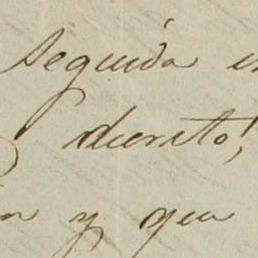 seguida
decreto!
y que